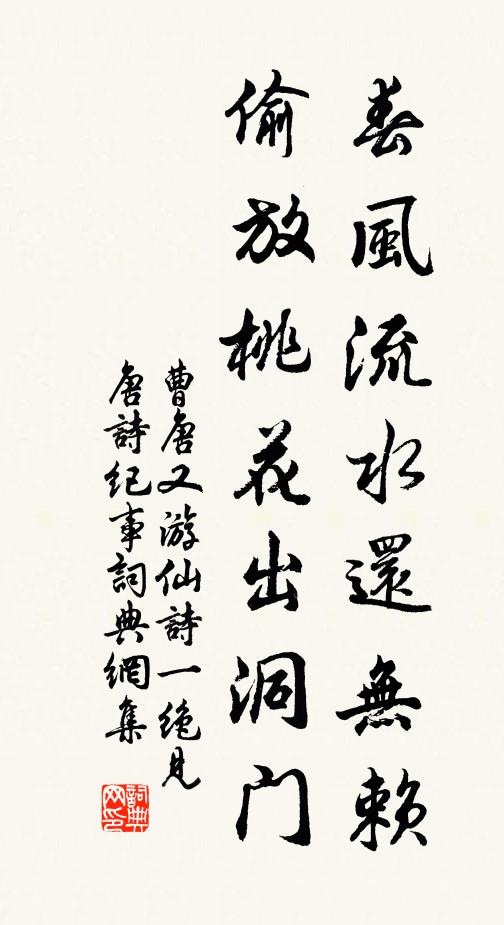 春風流水還無賴
偷放桃花出洞門
曹唐又游仙詩一絶見
唐詩纪事詞典網集
詞典网印